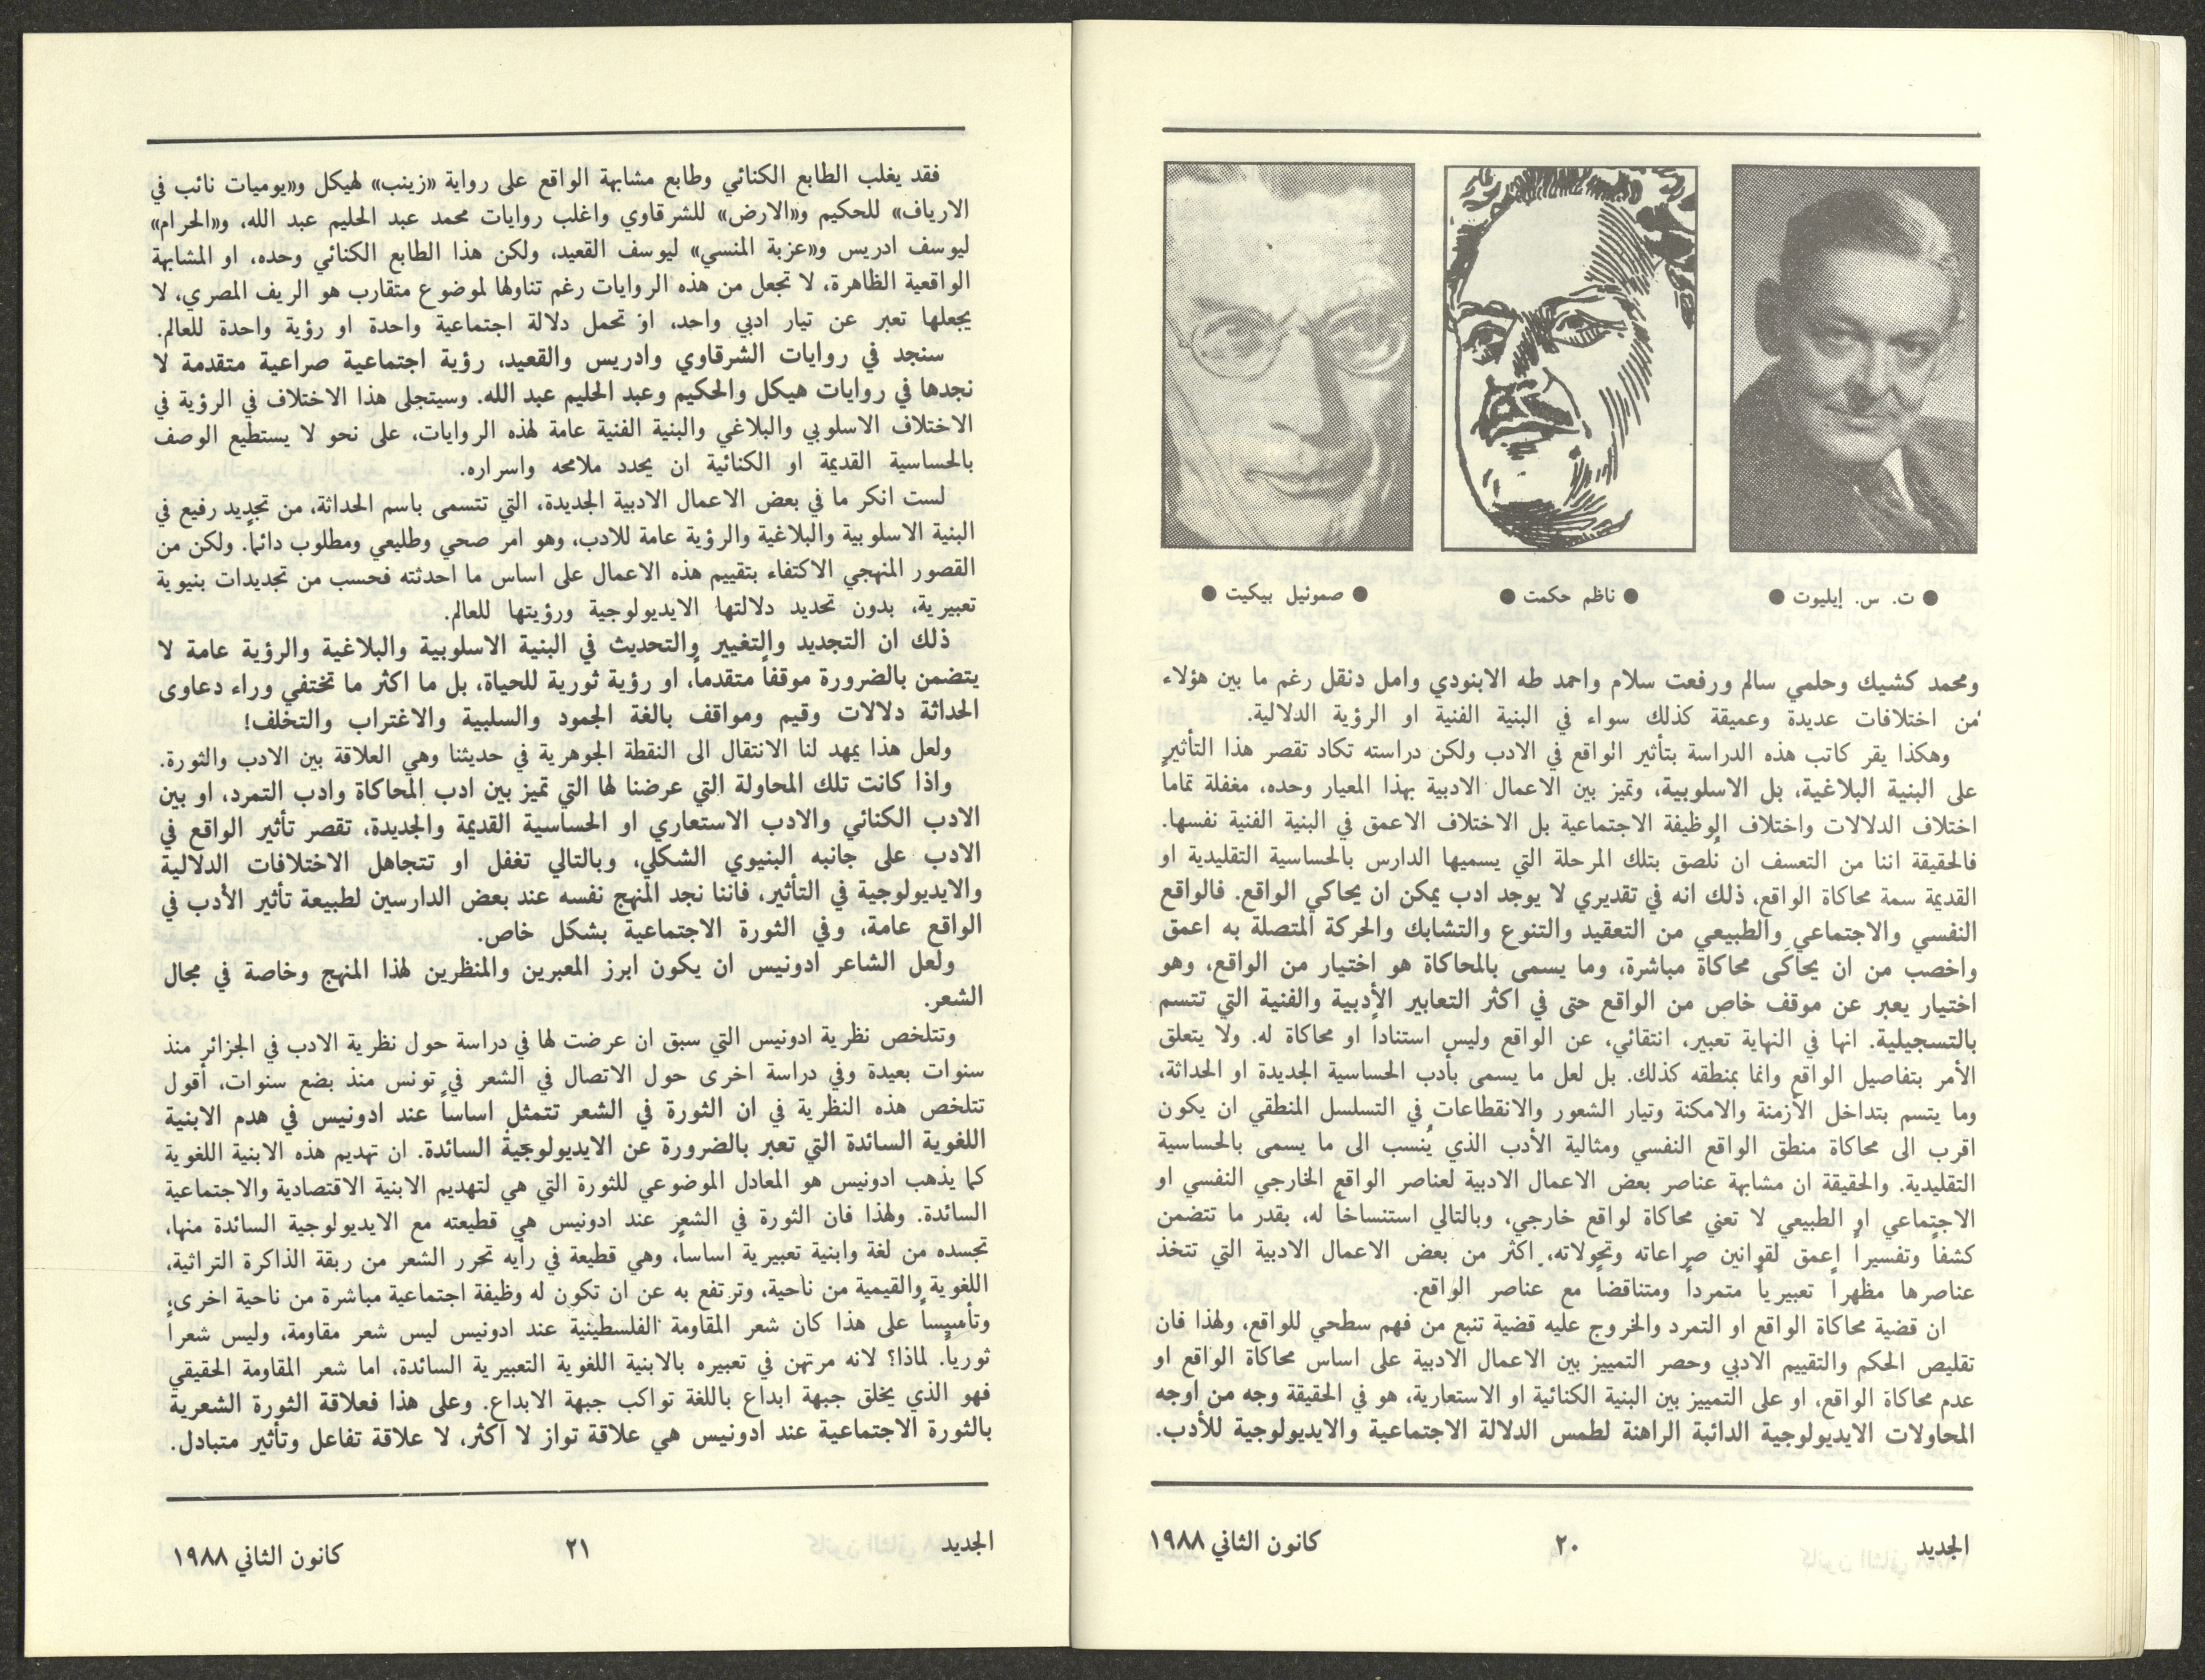 ● ت. س. إيليوت ●
● ناظم حكمت ●
● صموئيل بيكيت ●
ومحمد كشيك وحلمي سالم ورفعت سلام واحمد طه الابنودي وامل دنقل رغم ما بين هؤلاء
من اختلافات عديدة وعميقة كذلك سواء في البنية الفنية او الرؤية الدلالية.
وهكذا يقر كاتب هذه الدراسة بتأثير الواقع في الادب ولكن دراسته تكاد تقصر هذا التأثير
على البنية البلاغية، بل الاسلوبية، وتميز بين الاعمال الادبية بهذا المعيار وحده، مغفلة تماماً
اختلاف الدلالات واختلاف الوظيفة الاجتماعية بل الاختلاف الاعمق في البنية الفنية نفسها.
فالحقيقة اننا من التعسف ان نُلصق بتلك المرحلة التي يسميها الدارس بالحساسية التقليدية او
القديمة سمة محاكاة الواقع، ذلك انه في تقديري لا يوجد ادب يمكن ان يحاكي الواقع. فالواقع
النفسي والاجتماعي والطبيعي من التعقيد والتنوع والتشابك والحركة المتصلة به اعمق
واخصب من ان يحاكَى محاكاة مباشرة، وما يسمى بالمحاكاة هو اختيار من الواقع، وهو
اختيار يعبر عن موقف خاص من الواقع حتى في اكثر التعابير الأدبية والفنية التي تتسم
بالتسجيلية. انها في النهاية تعبير، انتقائي، عن الواقع وليس استناداً او محاكاة له. ولا يتعلق
الأمر بتفاصيل الواقع وانما بمنطقه كذلك. بل لعل ما يسمى بأدب الحساسية الجديدة او الحداثة،
وما يتسم بتداخل الأزمنة والامكنة وتيار الشعور والانقطاعات في التسلسل المنطقي ان يكون
اقرب الى محاكاة منطق الواقع النفسي ومثالية الأدب الذي يُنسب الى ما يسمى بالحساسية
التقليدية. والحقيقة ان مشابهة عناصر بعض الاعمال الادبية لعناصر الواقع الخارجي النفسي او
الاجتماعي او الطبيعي لا تعني محاكاة لواقع خارجي، وبالتالي استنساخاً له، بقدر ما تتضمن
كشفاً وتفسيراً اعمق لقوانين صراعاته وتحولاته، اكثر من بعض الاعمال الادبية التي تتخذ
عناصرها مظهراً تعبيرياً متمرداً ومتناقضاً مع عناصر الواقع.
ان قضية محاكاة الواقع او التمرد والخروج عليه قضية تنبع من فهم سطحي للواقع، ولهذا فان
تقليص الحكم والتقييم الادبي وحصر التمييز بين الاعمال الادبية على اساس محاكاة الواقع او
عدم محاكاة الواقع، او على التمييز بين البنية الكنائية او الاستعارية، هو في الحقيقة وجه من اوجه
المحاولات الايديولوجية الدائبة الراهنة لطمس الدلالة الاجتماعية والايديولوجية للأدب.
الجديد
٢٠
كانون الثاني ١٩٨٨
فقد يغلب الطابع الكنائي وطابع مشابهة الواقع على رواية «زينب» لهيكل و«يوميات نائب في
الارياف» للحكيم و«الارض» للشرقاوي واغلب روايات محمد عبد الحليم عبد الله، و«الحرام»
ليوسف ادريس و«عزبة المنسي» ليوسف القعيد، ولكن هذا الطابع الكنائي وحده، او المشابهة
الواقعية الظاهرة، لا تجعل من هذه الروايات رغم تناولها لموضوع متقارب هو الريف المصري، لا
يجعلها تعبر عن تيار ادبي واحد، او تحمل دلالة اجتماعية واحدة او رؤية واحدة للعالم.
سنجد في روايات الشرقاوي وادريس والقعيد، رؤية اجتماعية صراعية متقدمة لا
نجدها في روايات هيكل والحكيم وعبد الحليم عبد الله. وسيتجلى هذا الاختلاف في الرؤية في
الاختلاف الاسلوبي والبلاغي والبنية الفنية عامة لهذه الروايات، على نحو لا يستطيع الوصف
بالحساسية القديمة او الكنائية ان يحدد ملامحه واسراره.
لست انكر ما في بعض الاعمال الادبية الجديدة، التي تتسمى باسم الحداثة، من تجديد رفيع في
البنية الاسلوبية والبلاغية والرؤية عامة للادب، وهو امر صحي وطليعي ومطلوب دائماً. ولكن من
القصور المنهجي الاكتفاء بتقييم هذه الاعمال على اساس ما احدثته فحسب من تجديدات بنيوية
تعبيرية، بدون تحديد دلالتها الايديولوجية ورؤيتها للعالم.
ذلك ان التجديد والتغيير والتحديث في البنية الاسلوبية والبلاغية والرؤية عامة لا
يتضمن بالضرورة موقفاً متقدماً، او رؤية ثورية للحياة، بل ما اكثر ما تختفي وراء دعاوى
الحداثة دلالات وقيم ومواقف بالغة الجمود والسلبية والاغتراب والتخلف!
ولعل هذا يمهد لنا الانتقال الى النقطة الجوهرية في حديثنا وهي العلاقة بين الادب والثورة.
واذا كانت تلك المحاولة التي عرضنا لها التي تميز بين ادب المحاكاة وادب التمرد، او بين
الادب الكنائي والادب الاستعاري او الحساسية القديمة والجديدة، تقصر تأثير الواقع في
الادب على جانبه البنيوي الشكلي، وبالتالي تغفل او تتجاهل الاختلافات الدلالية
والايديولوجية في التأثير، فاننا نجد المنهج نفسه عند بعض الدارسين لطبيعة تأثير الأدب في
الواقع عامة، وفي الثورة الاجتماعية بشكل خاص.
ولعل الشاعر ادونيس ان يكون ابرز المعبرين والمنظرين لهذا المنهج وخاصة في مجال
الشعر.
وتتلخص نظرية ادونيس التي سبق ان عرضت لها في دراسة حول نظرية الادب في الجزائر منذ
سنوات بعيدة وفي دراسة اخرى حول الاتصال في الشعر في تونس منذ بضع سنوات، أقول
تتلخص هذه النظرية في ان الثورة في الشعر تتمثل اساساً عند ادونيس في هدم الابنية
اللغوية السائدة التي تعبر بالضرورة عن الايديولوجية السائدة. ان تهديم هذه الابنية اللغوية
كما يذهب ادونيس هو المعادل الموضوعي للثورة التي هي لتهديم الابنية الاقتصادية والاجتماعية
السائدة. ولهذا فان الثورة في الشعر عند ادونيس هي قطيعته مع الايديولوجية السائدة منها،
تجسده من لغة وابنية تعبيرية اساساً، وهي قطيعة في رأيه تحرر الشعر من ربقة الذاكرة التراثية،
اللغوية والقيمية من ناحية، وترتفع به عن ان تكون له وظيفة اجتماعية مباشرة من ناحية اخرى،
وتأسيساً على هذا كان شعر المقاومة الفلسطينية عند ادونيس ليس شعر مقاومة، وليس شعراً
ثورياً. لماذا؟ لانه مرتهن في تعبيره بالابنية اللغوية التعبيرية السائدة، اما شعر المقاومة الحقيقي
فهو الذي يخلق جبهة ابداع باللغة تواكب جبهة الابداع. وعلى هذا فعلاقة الثورة الشعرية
بالثورة الاجتماعية عند ادونيس هي علاقة تواز لا اكثر، لا علاقة تفاعل وتأثير متبادل.
الجديد
٢١
كانون الثاني ١٩٨٨